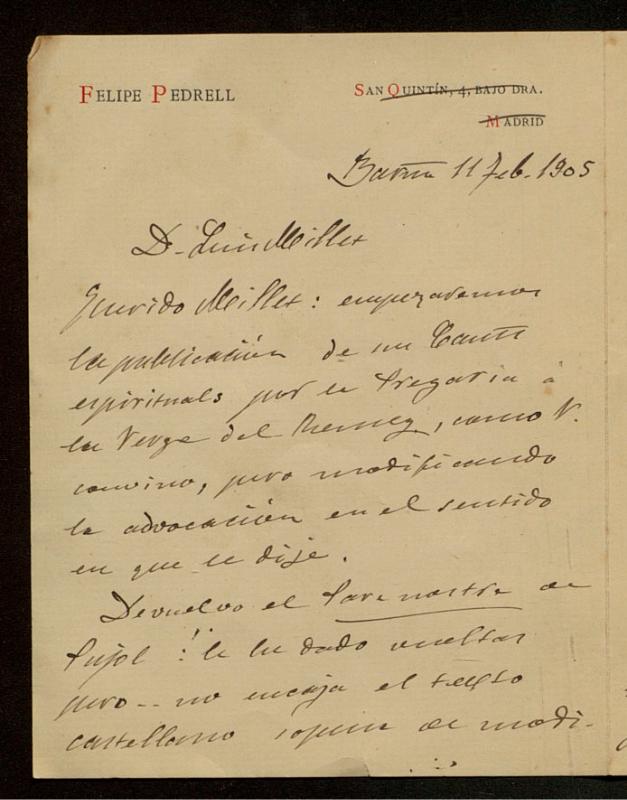 FELIPE PEDRELL
SAN QUINTÍN, 4, BAJO DRA.
MADRID
Barna 11 Feb. 1905
D. Luis Millet
Querido Millet: empezaremos
la publicación de mis Cants
espirituals por la Pregaria á
la Verge del Remey, como V.
convino, pero modificando
la advocación en el sentido
en que le dije.
Devuelvo el Pare nostre de
Pujol! le he dado vueltas
pero -- no encaja el texto
castellano de modi-